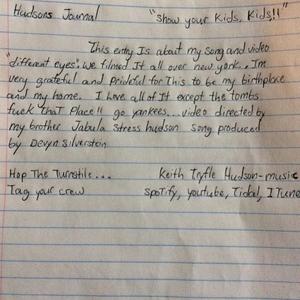 Hudsons Journal "Show your Kids, Kids!!"
This entry Is about my song and video
"different eyes". we filmed It all over new york. Im
very grateful and prideful for This to be my birthplace
and my home. I love all of It except the tombs
fuck that Place!! go yankees... video directed by
my brother Jabula Stress hudson song produced
by Devyn Silverston
Hop The Turnstile... Keith Hudson-music
Tag your crew spotify, youtube, Tidal, I Tune